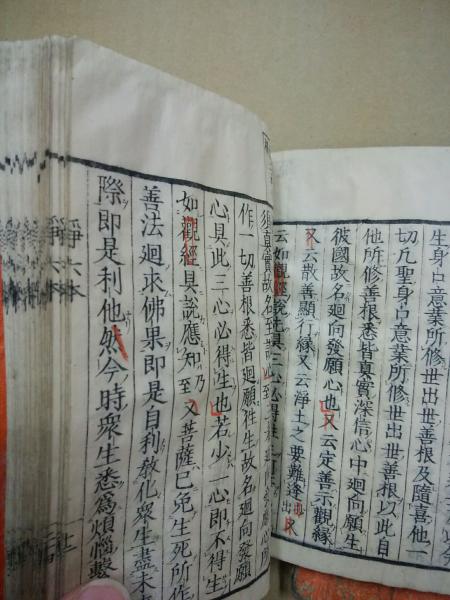 生身口意業所修世出世善根及隨喜他一
切凡聖身口意業所修世出世善根以此自
他所修善根悉皆真實深信心中廻向願生
彼國故名廻向發願心也又云定善示觀緣
又云散善顯行緣又云淨土之要難逢出
云如觀經說具三心必得
須真實故名至誠心
作一切善根悉皆廻願往生故名廻向發願
心具此三心必得生也若少一心即不得生
如觀經具說應知至乃又菩薩已免生死所作
善法廻求佛果即是自利敎化衆生盡未來
際即是利他然今時衆生悉為煩惱繫